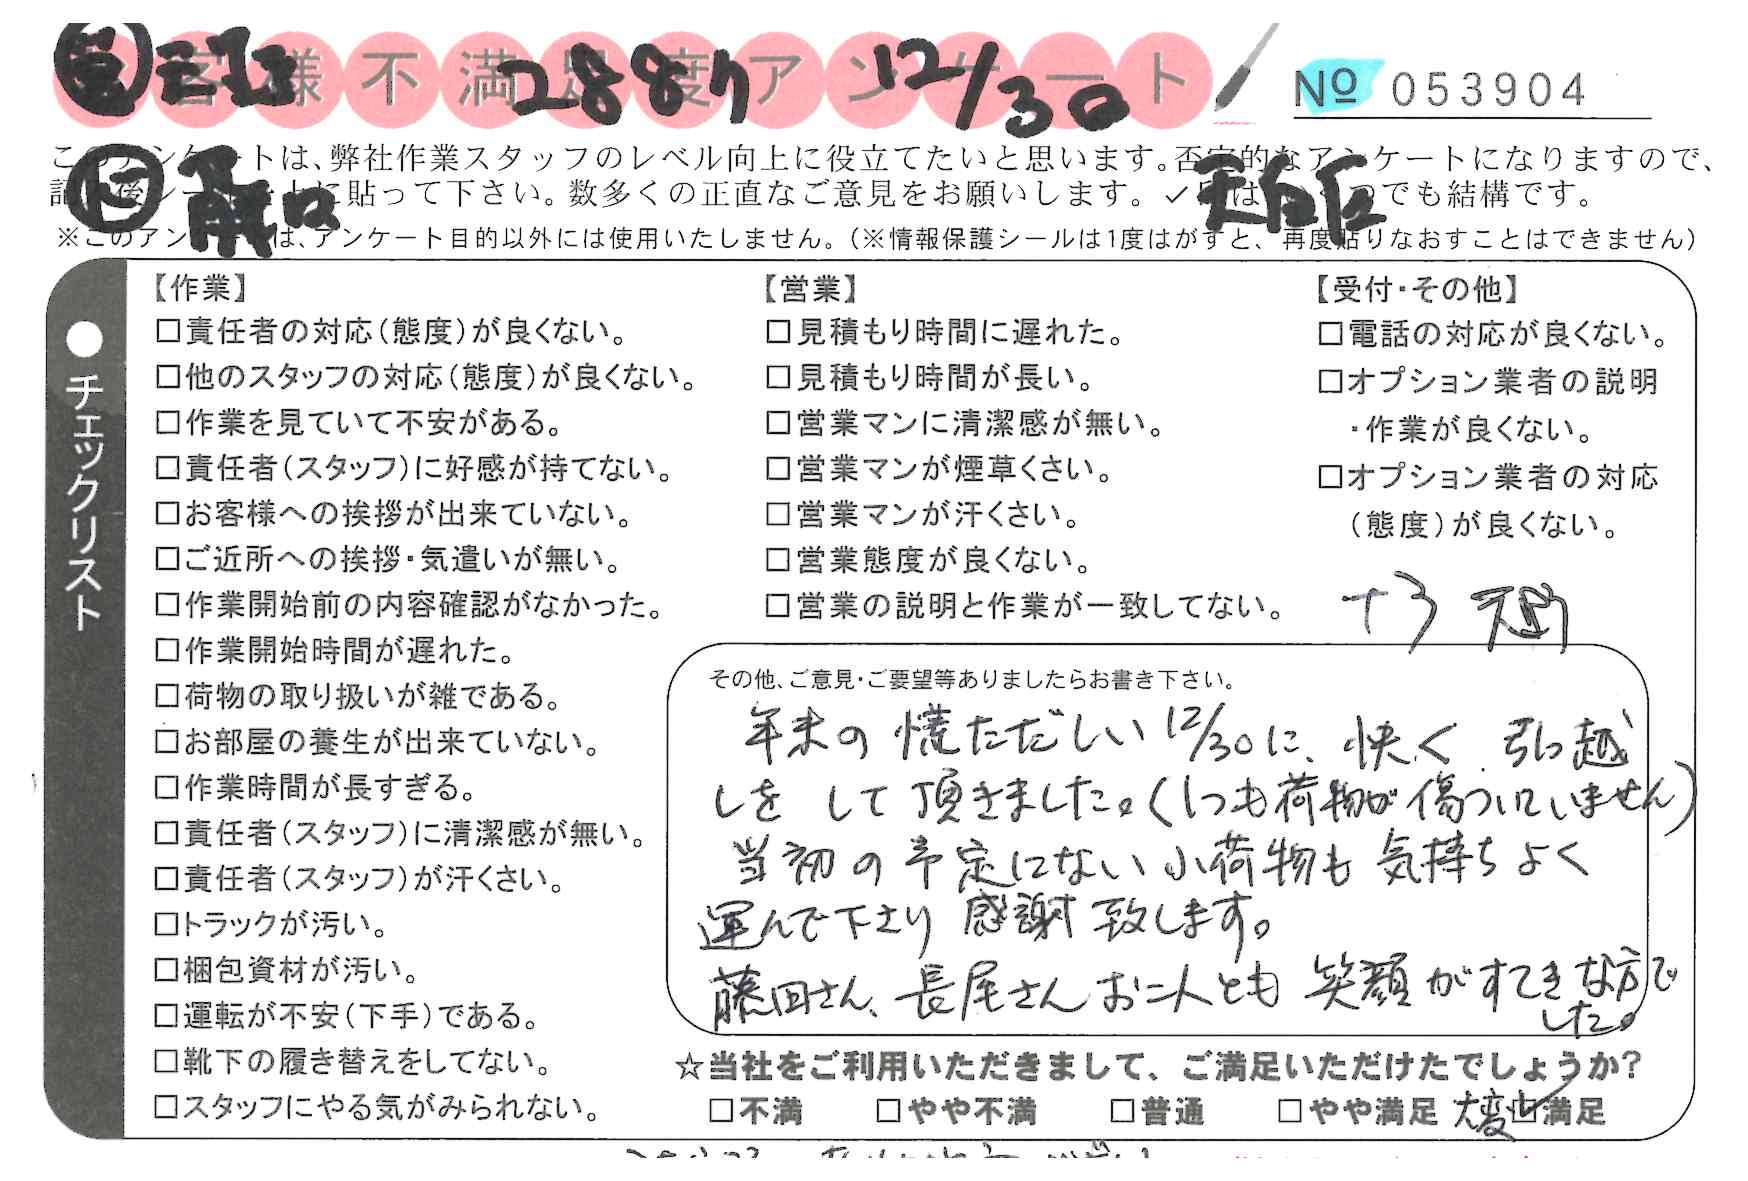 お客様不満足度アンケート
2887 12/30
№ 053904
このアンケートは、弊社作業スタッフのレベル向上に役立てたいと思います。否定的なアンケートになりますので、
記入後シールを上に貼って下さい。数多くの正直なご意見をお願いします。✓印はいくつでも結構です。
天白区
※このアンケートは、アンケート目的以外には使用いたしません。（※情報保護シールは1度はがすと、再度貼りなおすことはできません）
●チェックリスト
【作業】
□責任者の対応（態度）が良くない。
□他のスタッフの対応（態度）が良くない。
□作業を見ていて不安がある。
□責任者（スタッフ）に好感が持てない。
□お客様への挨拶が出来ていない。
□ご近所への挨拶・気遣いが無い。
□作業開始前の内容確認がなかった。
□作業開始時間が遅れた。
□荷物の取り扱いが雑である。
□お部屋の養生が出来ていない。
□作業時間が長すぎる。
□責任者（スタッフ）に清潔感が無い。
□責任者（スタッフ）が汗くさい。
□トラックが汚い。
□梱包資材が汚い。
□運転が不安（下手）である。
□靴下の履き替えをしてない。
□スタッフにやる気がみられない。
【営業】
□見積もり時間に遅れた。
□見積もり時間が長い。
□営業マンに清潔感が無い。
□営業マンが煙草くさい。
□営業マンが汗くさい。
□営業態度が良くない。
□営業の説明と作業が一致してない。
【受付・その他】
□電話の対応が良くない。
□オプション業者の説明
・作業が良くない。
□オプション業者の対応
（態度）が良くない。
その他、ご意見・ご要望等ありましたらお書き下さい。
年末の慌ただしい12/30に、快く引っ越
しをして頂きました。（1つも荷物が傷ついていません）
当初の予定にない小荷物も気持ちよく
運んで下さり感謝致します。
藤田さん、長尾さんお二人とも笑顔がすてきな方で
した。
☆当社をご利用いただきまして、ご満足いただけたでしょうか？
□不満 □やや不満 □普通 □やや満足 大変 ☑満足